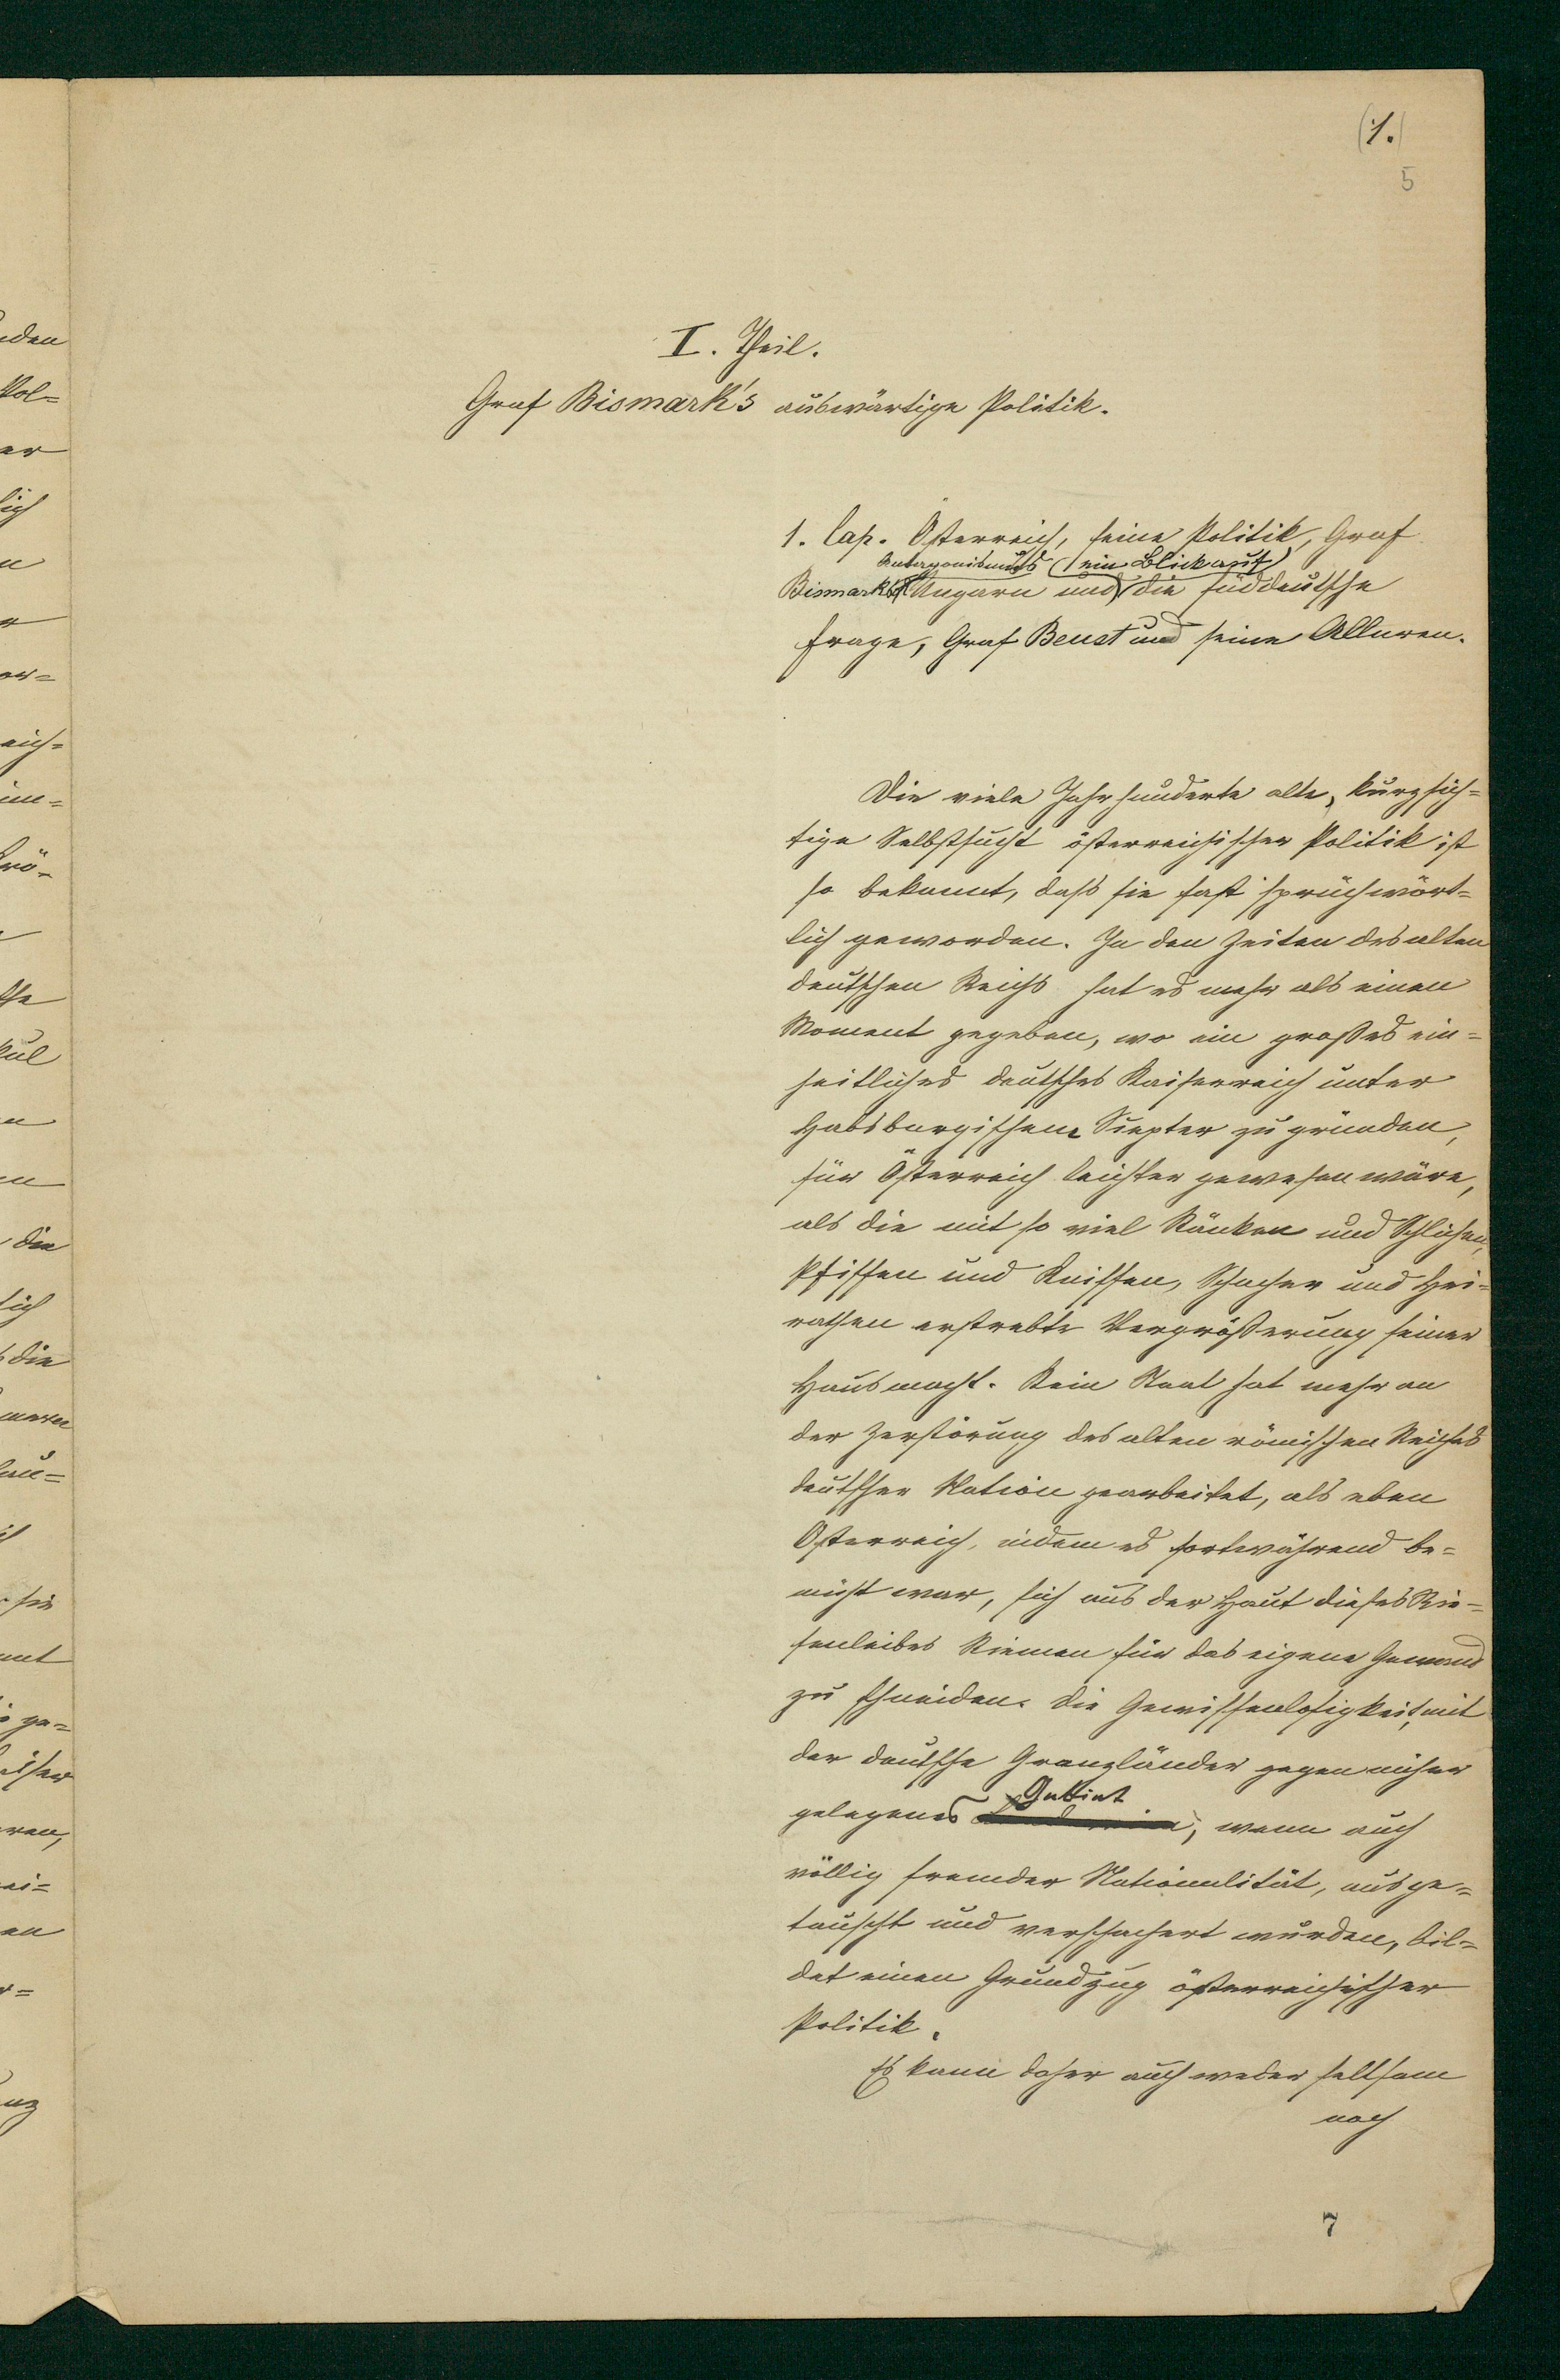 (1.)
5
I. Theil.
Graf Bismark's auswärtige Politik.
1. Cap. Österreich, seine Politik, Graf
Antagonismus (ein Blick auf)
Bismarks Ungarn und die süddeutsche
Frage, Graf Beust und seine Alluren.
Die viele Jahrhunderte alte, kurzsich=
tige Selbstsucht österreichischer Politik ist
so bekannt, daß sie fast sprüchwört=
lich geworden. In den Zeiten des alten
deutschen Reichs hat es mehr als einen
Moment gegeben, wo ein großes ein=
heitliches deutsches Kaiserreich unter
Habsburgischem Scepter zu gründen,
für Österreich leichter gewesen wäre,
als die mit so viel Ränken und Schlichen,
Pfiffen und Kniffen, Schacher und Hei=
rathen erstrebte Vergrößerung seiner
Hausmacht. Kein Staat hat mehr an
der Zerstörung des alten römischen Reiches
deutscher Nation gearbeitet, als eben
Österreich, indem es fortwährend be=
müht war, sich aus der Haut dieses Rie=
senleibes Riemen für das eigene Gewand
zu schneiden. Die Gewissenlosigkeit, mit
der deutsche Granzländer gegen näher
Gebiet
gelegenes, wenn auch
völlig fremder Nationalität, ausge=
tauscht und verschachert wurden, bil=
det einen Grundzug österreichischer
Politik.
Es kann daher auch weder seltsam
noch
7
den
Pol=
er
lich
n
eich=
die
lich
die
sie
ge=
ren,
ei=
en